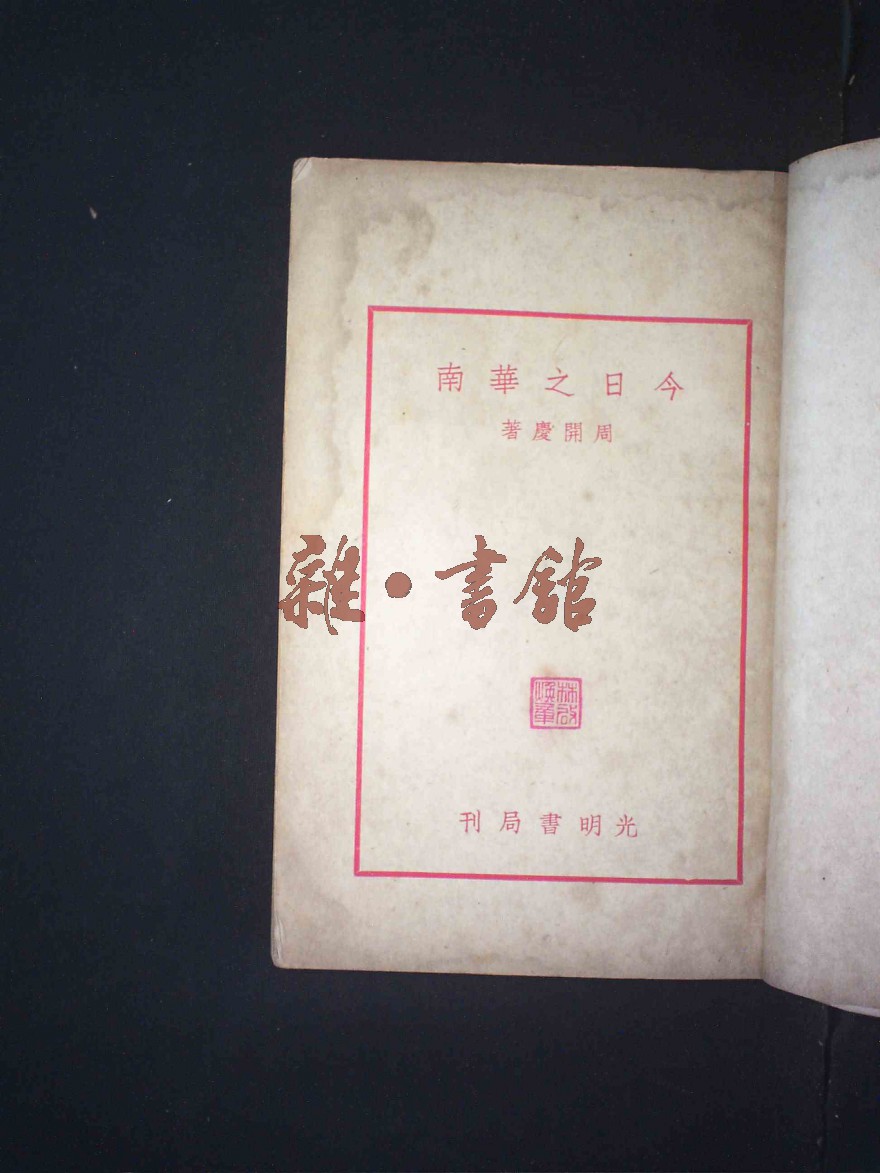 今日之華南
周開慶著
雜·書館
林啟煥章
光明書局刊